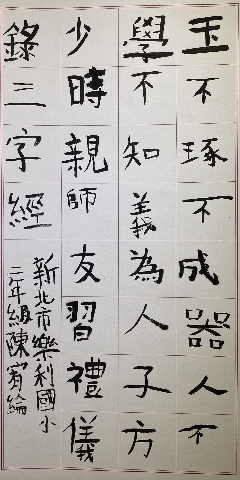 玉不琢不成器人不
學不知義為人子方
少時親師友習禮儀
錄三字經
新北市樂利國小
三年級陳宥綸